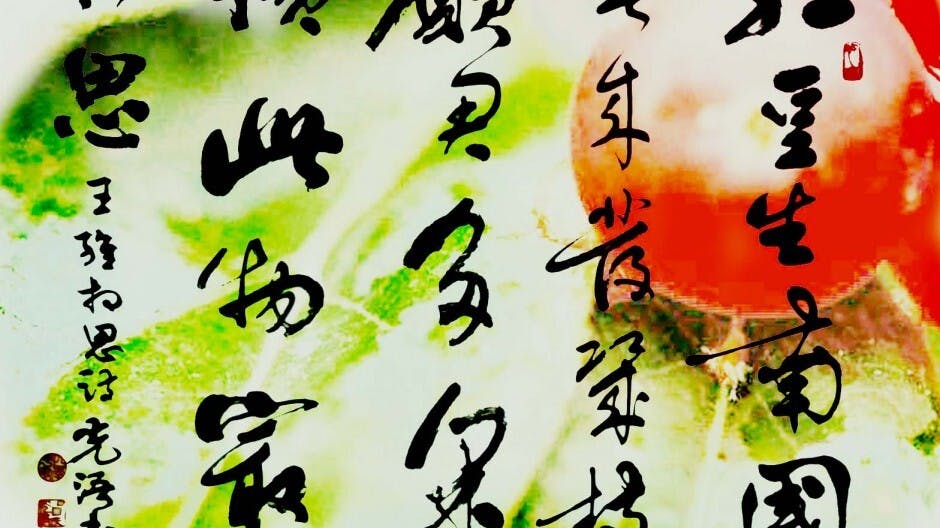 豆生南國
来發幾枝
願君多采
此物最
思
王維相思詩